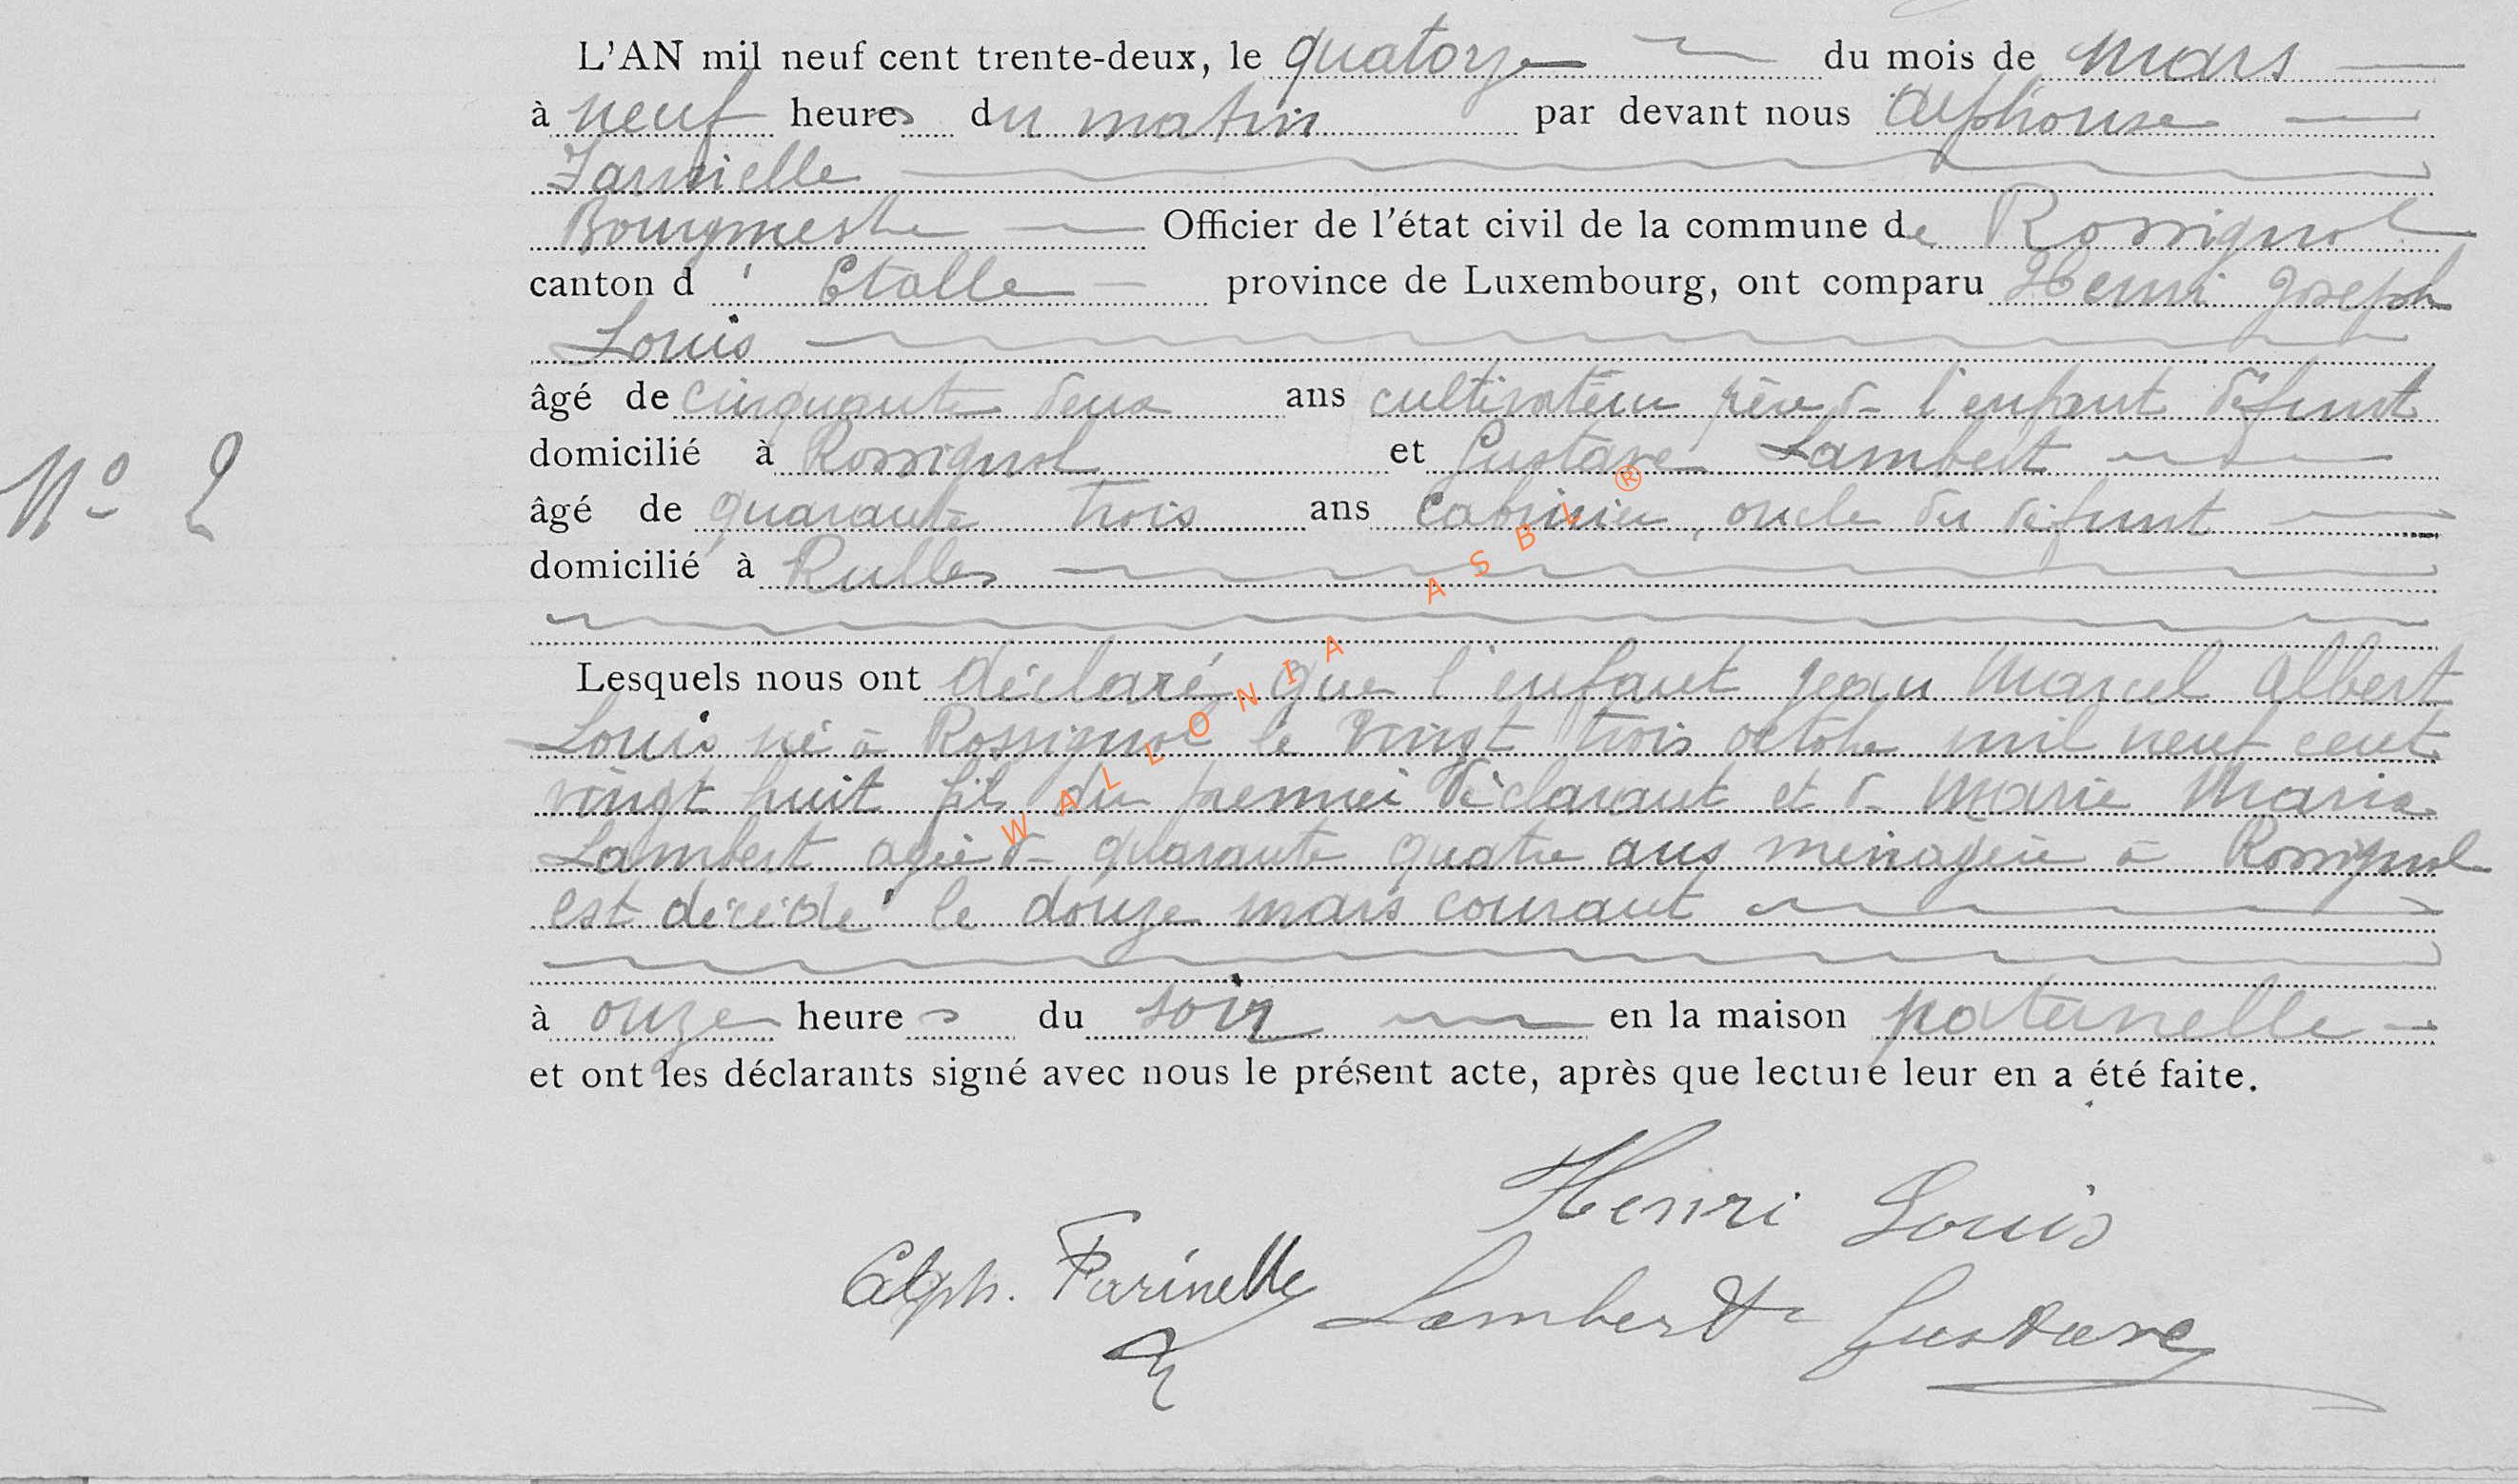 L'AN mil neuf cent trente-deux, le quatorze du mois de mars
à neuf heures du matin par devant nous Alphonse
Farinelle
Bourgmestre Officier de l'état civil de la commune de Rossignol
canton d' Etalle province de Luxembourg, ont comparu Henri Joseph
Louis
âgé de cinquante deux ans cultivateur père de l'enfant défunt
domicilié à Rossignol et Gustave Lambert
N° 2
âgé de quarante trois ans oncle du défunt
domicilié à Rulles
Lesquels nous ont déclaré que l'enfant Jean Marcel Albert
Louis né à Rossignol le vingt trois octobre mil neuf cent
vingt huit fils du premier déclarant et de Marie Maria
Lambert agée de quarante quatre ans ménagère à Rossignol
est décédé le douze mars courant
à onze heures du soir en la maison paternelle
et ont les déclarants signé avec nous le présent acte, après que lecture leur en a été faite.
Henri Louis
Alph. Farinelle Lambert Gustave
WALLONIA ASBL ®